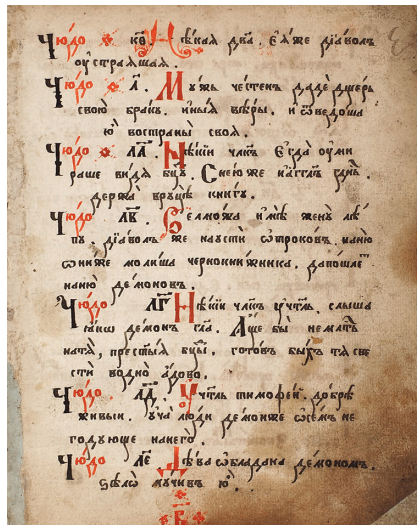 Чюдо кѳ Нѣкая два. Еяже дїаволъ
оустрашая.
Чюдо л҃. Мужъ честенъ даде дщерь
свою бракꙋ. иныѧ вѣры. и ѿведоша
ю востраны своя.
Чюдо л҃а. Нѣкїи члкъ. Егда оуми
раше видѧ бцꙋ. Снеюже иагглъ гднь.
держа врꙋцѣ книгꙋ.
Чюдо л҃в. Велможа имѣ женꙋ лѣ
пꙋ. дїаволъ же наꙋсти ѿроковъ. наню
ѡниже молиша чернокнижника, дапошлет
наню демоновъ.
Чюдо л҃г Нѣкїи члкъ слыша
демонъ гла. Аще бы нематъ
натѧ, престыѧ бцы. готовъ быхъ тѧ све
сти водно адово.
Чюдо л҃д. тимофей. добрѣ
живыи. ꙋча люди демониже ѿсемъ не
годꙋюще нанего.
Чюдо л҃е Дѣва ѡбладана демономъ.
ѕѣлѡ мꙋчивъ ю.